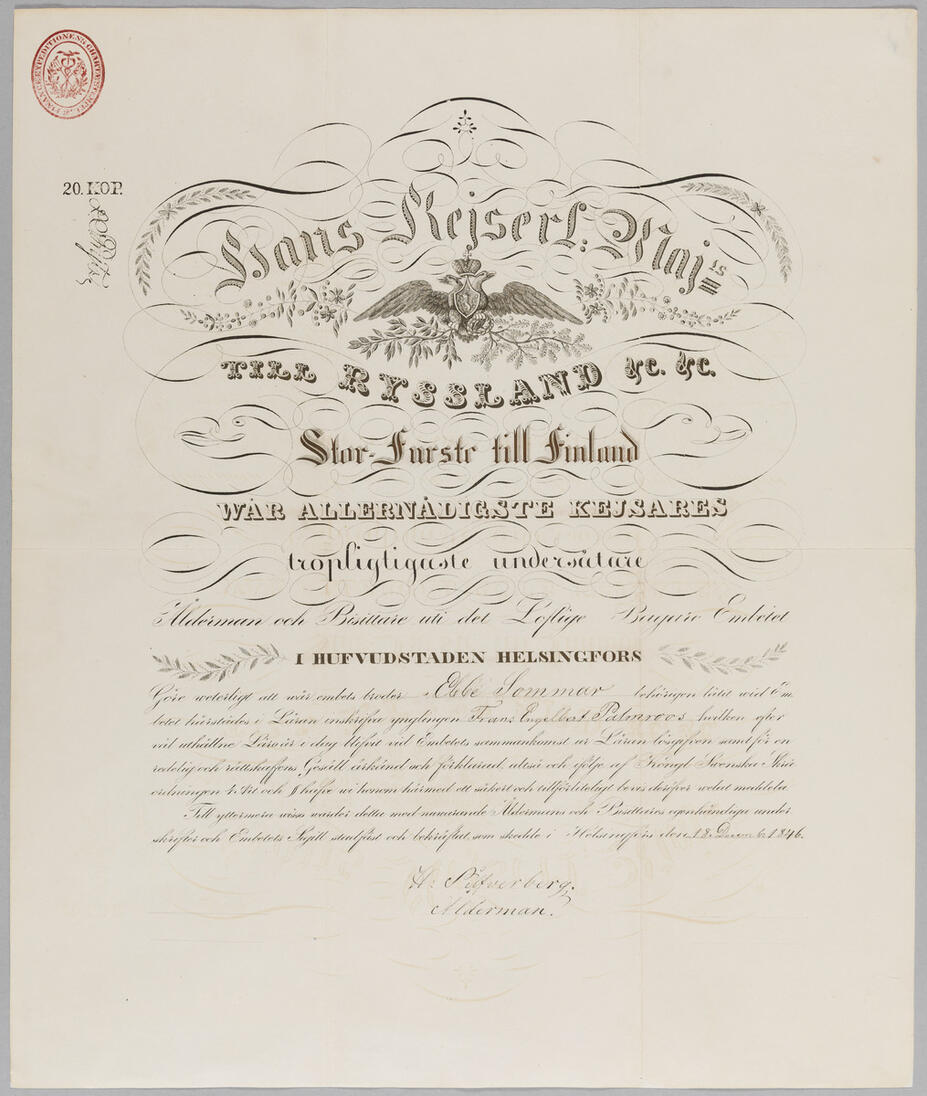 FINANCE-EXPEDITIONENS CHARTÆ
20. KOP.
Hans Kejserl: Maj:sts
TILL RYSSLAND &C. &C.
Stor-Furste till Finland
WÅR ALLERNÅDIGSTE KEJSARES
tropligtigaste undersåtare
Ålderman och Bisittare uti det Loflige Bagare Embetet
I HUFVUDSTADEN HELSINGFORS
Göre weterligt att wår embets broder Ebbe Sommar behörigen låtit wid Em-
betet härstädes i Läran inskrifva ynglingen Franz Engelbert Palmroos hvilken efter
väl uthållne Läroår i dag blifvit vid Embetets sammankomst ur Läran lösgifven samt för en
redelig och rättskaffens Gesäll ärkänd och förklarad, altså och i följe af Kongl Svenska Skrå
ordningen 4 Art och § hafve wi honom härmed ett säkert och tillförliteligt bevis deröfver velat meddela
Till yttermera wisso warder detta med nuvarande Åldermans och Bisittares egenhändiga under
skrifter och Embetets Sigill stadfäst och bekräftat, som skedde i Helsingfors den 18 Decemb. 1846.
H: Silfverberg.
Alderman.